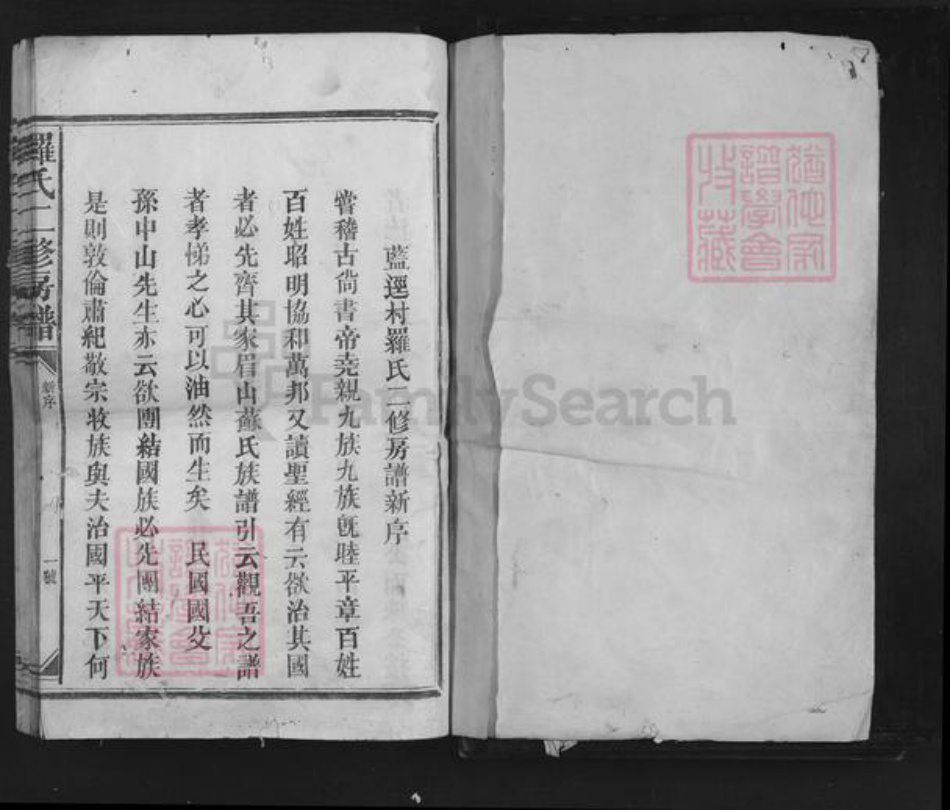 藍逕村羅氏二修房譜新序
嘗稽古尙書帝堯親九族九族旣睦平章百姓
百姓昭明協和萬邦又讀聖經有云欲治其國
者必先齊其家眉山蘇氏族譜引云觀吾之譜
者孝悌之心可以油然而生矣 民國國父
孫中山先生亦云欲團結國族必先團結家族
是則敦倫肅紀敬宗收族與夫治國平天下何
羅氏二修房譜
新序
一號
猶他家
譜學會
收藏
FamilySearch